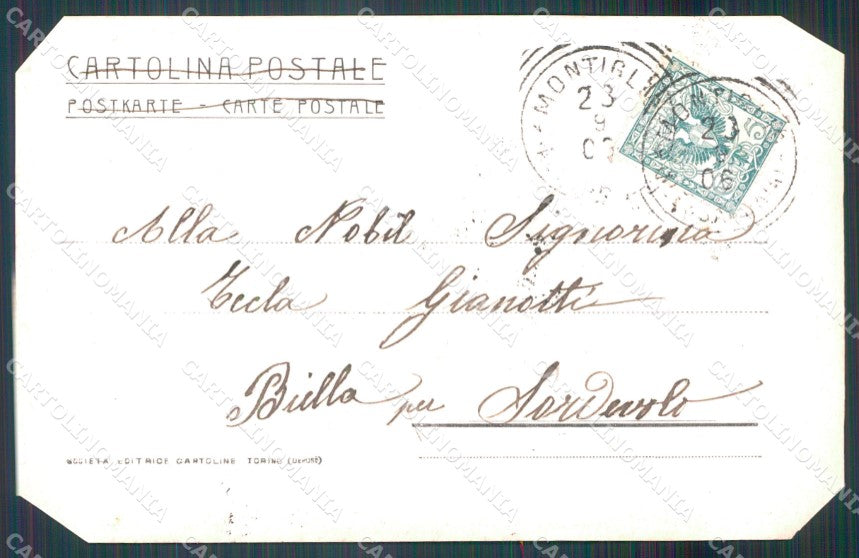 CARTOLINA POSTALE
POSTKARTE - CARTE POSTALE
MONTIGL
23
9
23
06
5
Alla Nobil Signorina
Tecla Gianotti
Biella per Sordevolo
SOCIETÀ EDITRICE CARTOLINE TORINO (DEPOSÉ)
CARTOLINOMANIA